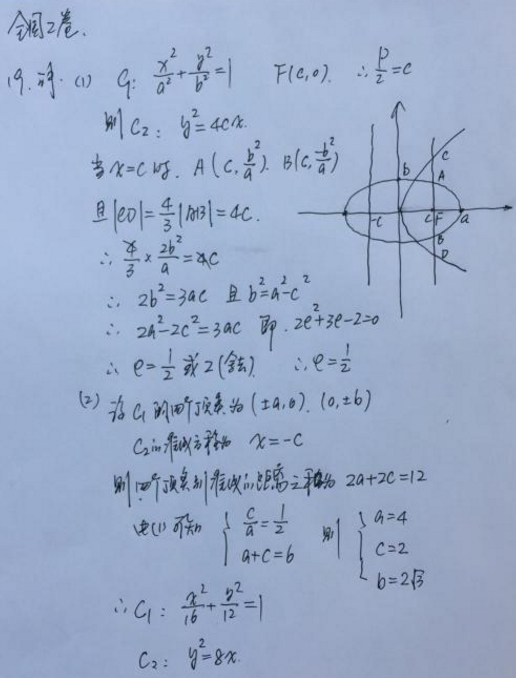 全国2卷.
19.解.(1) C₁: x²/a²+y²/b²=1 F(c,0). ∴ p/2=c
则C₂: y²=4cx.
当x=c时. A(c,b²/a). B(c,b²/a)
且|CD|=4/3|AB|=4c.
∴ 4/3×2b²/a=4c
∴ 2b²=3ac 且b²=a²-c²
∴ 2a²-2c²=3ac 即. 2e²+3e-2=0
∴ e=1/2或2(舍去). ∴ e=1/2
b C A -c c F a B D
(2) 设C₁的四个顶点为(±a,0).(0,±b)
C₂的准线方程为 x=-c
则四个顶点到准线的距离之和为 2a+2c=12
由(1)可知 { c/a=1/2 a+c=6 则 { a=4 c=2 b=2√3
∴ C₁: x²/16+y²/12=1
C₂: y²=8x.